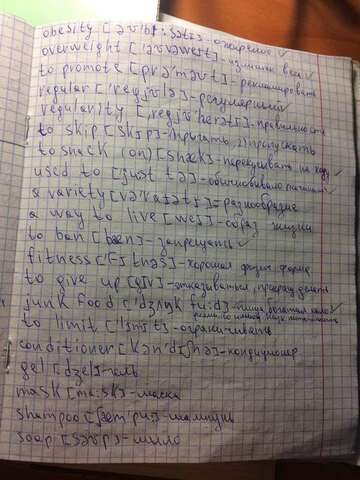 obesity [əʊ'bi:sətɪ]-ожирение ✓
overweight ['əʊvəweɪt]-излишек веса ✓
to promote [prə'məʊt]-рекламировать
regular ['regjʊlə]-регулярный ✓
regularity ['regjʊ'lærətɪ]-правильность
to skip [skɪp]-1)прыгать, 2)пропускать
to snack (on) [snæk]-перекусывать на ходу
used to [just tə]-обычно бывало раньше ✓
a variety [və'raɪətɪ]-разнообразие
a way to live [weɪ]-образ жизни
to ban [bæn]-запрещать ✓
fitness ['fɪtnəs]-хорошая физич. форма
to give up [gɪv]-отказываться, прекращ. делать
junk food ['dʒʌŋk fu:d]-пища, богатая кало-
to limit ['lɪmɪt]-ограничивать
conditioner [kən'dɪʃnə]-кондиционер
gel [dʒel]-гель
mask [ma:sk]-маска
shampoo [ʃæm'pu:]-шампунь
soap [səʊp]-мыло